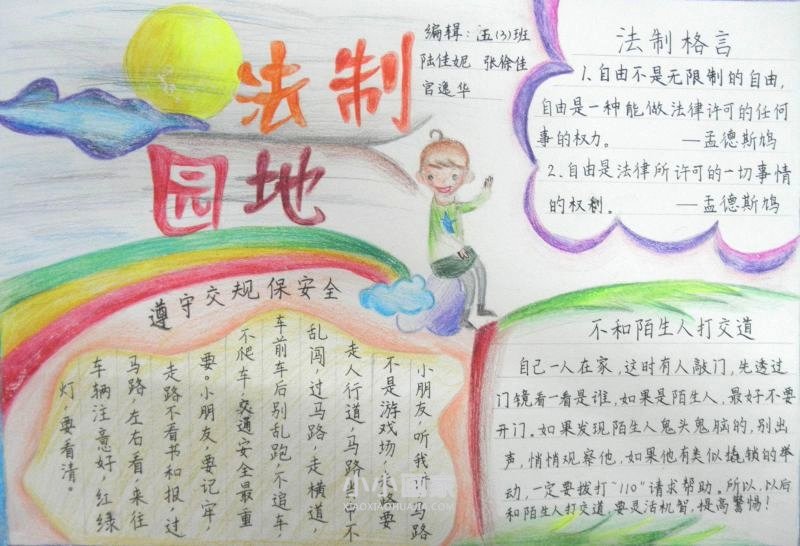 法制
园地
编辑：五(3)班
陆佳妮 张徐佳
宫逸华
法制格言
1.自由不是无限制的自由，
自由是一种能做法律许可的任何
事的权力。 —孟德斯鸠
2.自由是法律所许可的一切事情
的权利。 —孟德斯鸠
遵守交规保安全
小朋友，听我讲，马路
不是游戏场，走路要
走人行道，马路当中不
乱闯，过马路，走横道，
车前车后别乱跑，不追车，
不爬车，交通安全最重
要。小朋友，要记牢，
走路不看书和报，过
马路，左右看，来往
车辆注意好，红绿
灯，要看清。
不和陌生人打交道
自己一人在家，这时有人敲门，先透过
门镜看一看是谁，如果是陌生人，最好不要
开门。如果发现陌生人鬼头鬼脑的，别出
声，悄悄观察他，如果他有类似撬锁的举
动，一定要拨打“110”请求帮助。所以，以后
和陌生人打交道，要灵活机智，提高警惕！
小小画家
XIAOXIAOHUAJIA.COM